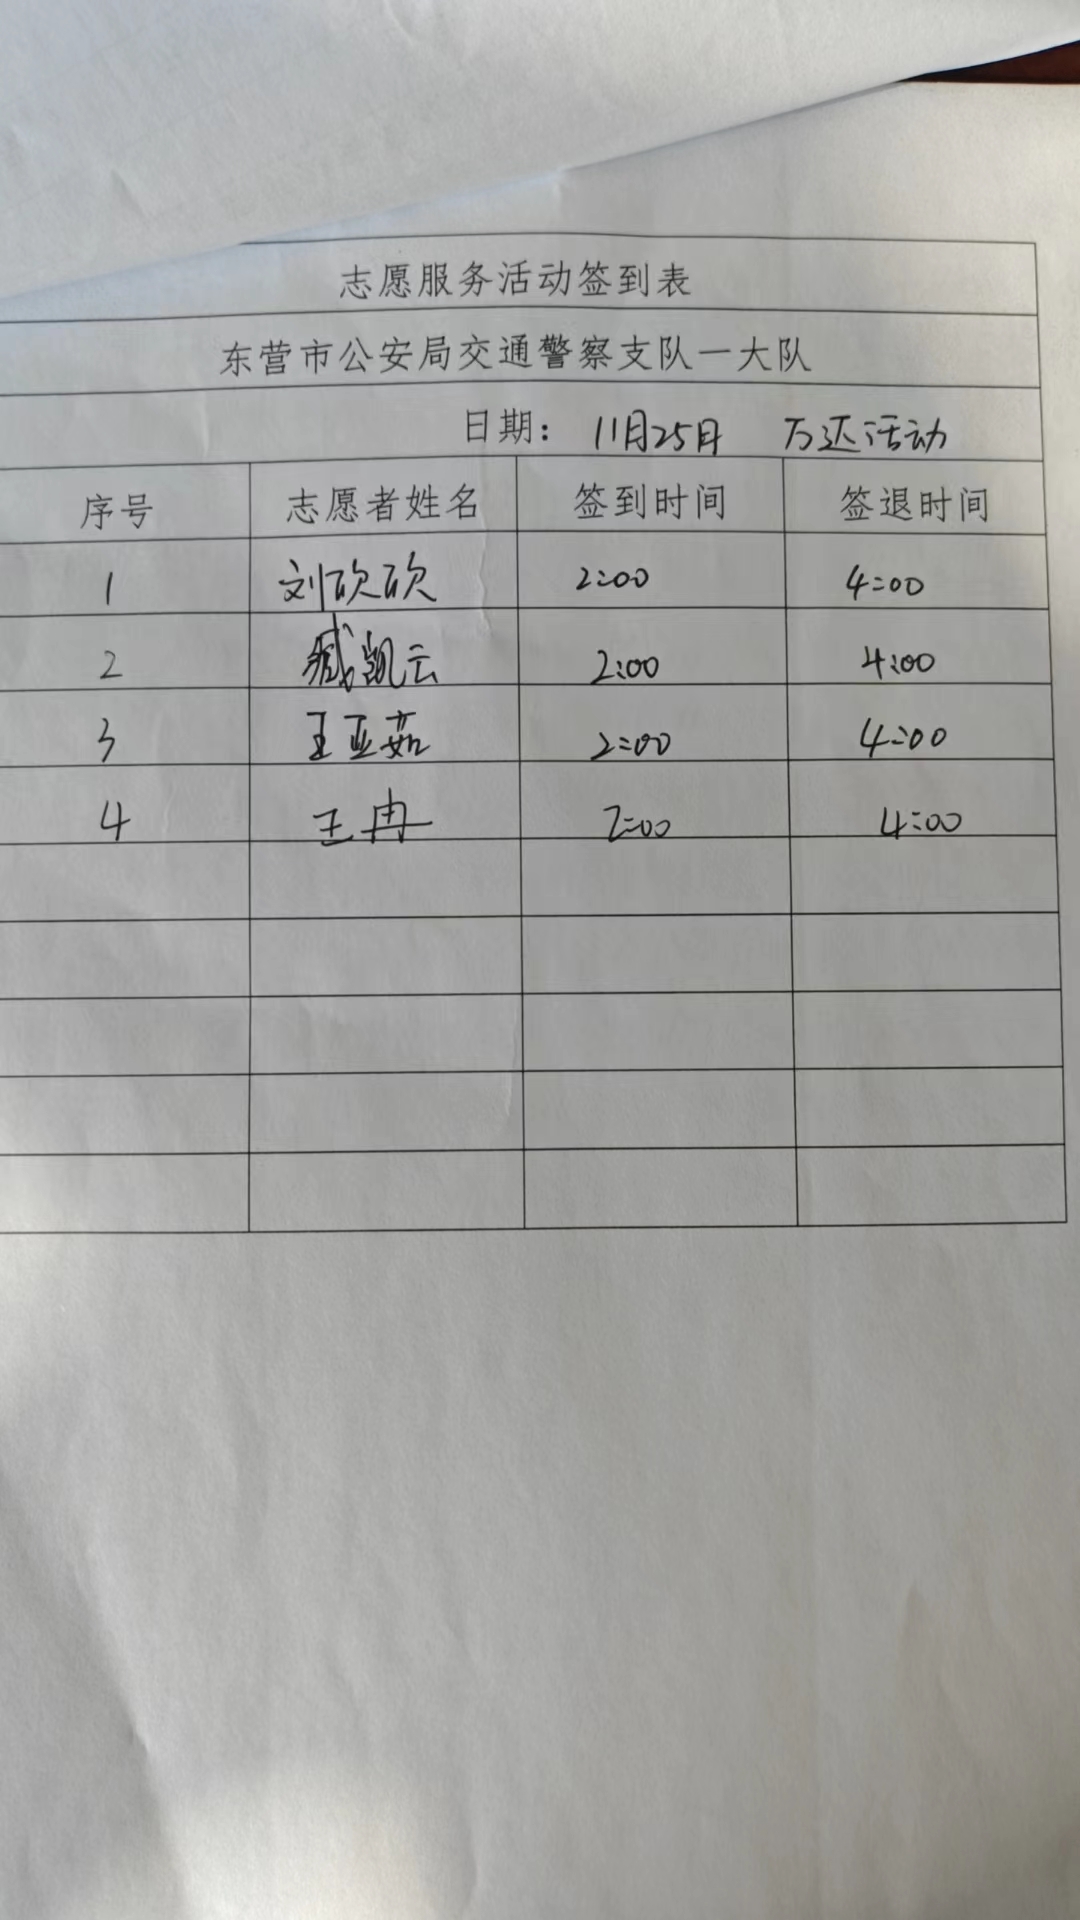 志愿服务活动签到表
东营市公安局交通警察支队一大队
日期： 11月25日 万达活动
序号 志愿者姓名 签到时间 签退时间
1 刘砍砍 2:00 4:00
2 臧凯云 2:00 4:00
3 王亚茹 2:00 4:00
4 王冉 2:00 4:00